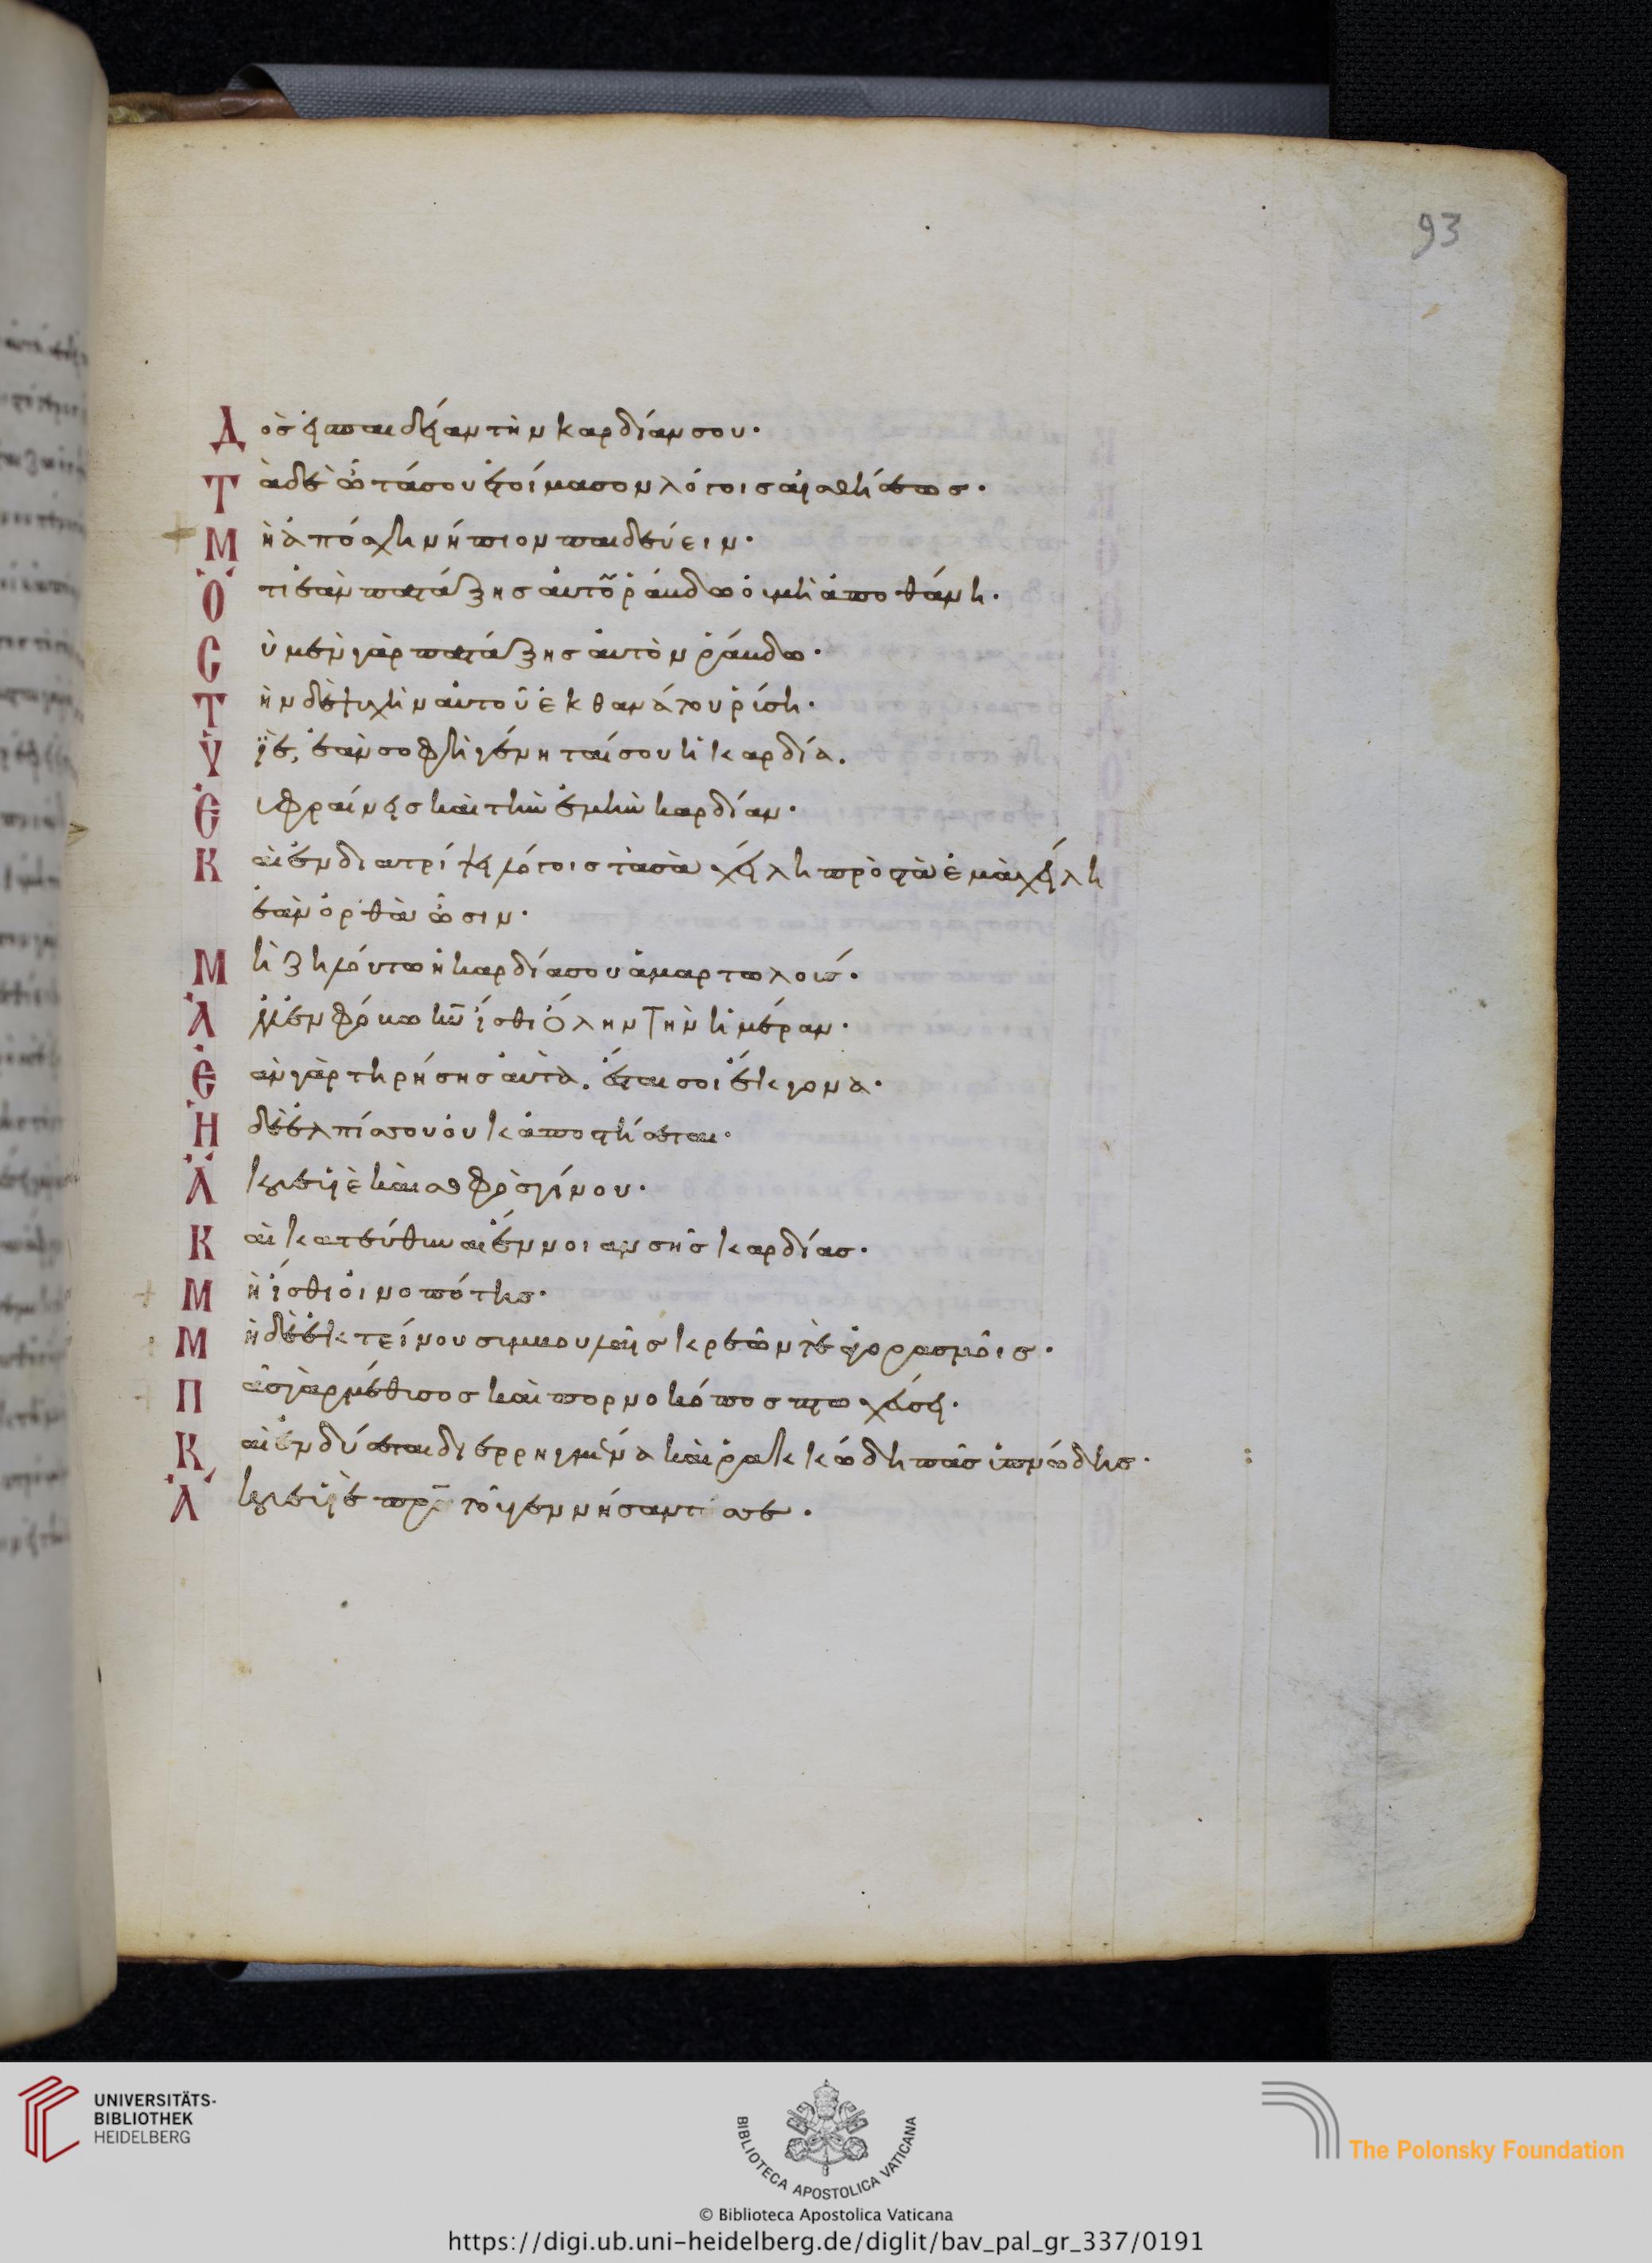 93
Δὸς εἰς παιδείαν τὴν καρδίαν σου·
Τὰ δὲ ὦτά σου ἑτοίμασον λόγοις αἰσθήσεως·
Μὴ ἀπόσχη νήπιον παιδεύειν·
Ὅτι ἐὰν πατάξης αὐτὸν ῥάβδω οὐ μὴ ἀποθάνη·
Σὺ μὲν γὰρ πατάξης αὐτὸν ῥάβδω·
Τὴν δὲ ψυχὴν αὐτοῦ ἐκ θανάτου ῥύση·
Υἱὲ, ἐὰν σοφὴ γένηταί σου ἡ καρδία.
Εὐφραίνεις καὶ τὴν ἐμὴν καρδίαν·
Καὶ ἐνδιατρίψει λόγοις τὰ σὰ χείλη πρὸς τὰ ἐμὰ χείλη
ἐὰν ὀρθὰ ὦσιν·
Μὴ ζηλούτω ἡ καρδία σου ἁμαρτωλούς·
Ἀλλ' ἐν φόβω κυ ἴσθι ὅλην τὴν ἡμέραν·
Ἐὰν γὰρ τηρήσης αὐτὰ. ἔσται σοι ἔκγονα·
Ἡ δὲ ἐλπίς σου οὐκ ἀποστήσεται·
Ἄκουε υἱὲ καὶ σοφὸς γίνου·
Καὶ κατεύθυναι ἐννοίαν σῆς καρδίας·
Μὴ ἴσθι οἰνοπότης·
Μὴ δὲ ἐκτείνου συμβουλαῖς κρεῶν τὲ ἀγορασμοῖς·
Πᾶς γὰρ μέθυσος καὶ πορνοκόπος πτωχεύσει·
Καὶ ἐνδύσεται διερρηγμένα καὶ ῥακκώδη πᾶς ὑπνώδης·
Ἄκουε υἱὲ πρς τοῦ γεννήσαντός σε·
UNIVERSITÄTS-
BIBLIOTHEK
HEIDELBERG
BIBLIOTECA APOSTOLICA VATICANA
The Polonsky Foundation
© Biblioteca Apostolica Vaticana
https://digi.ub.uni-heidelberg.de/diglit/bav_pal_gr_337/0191